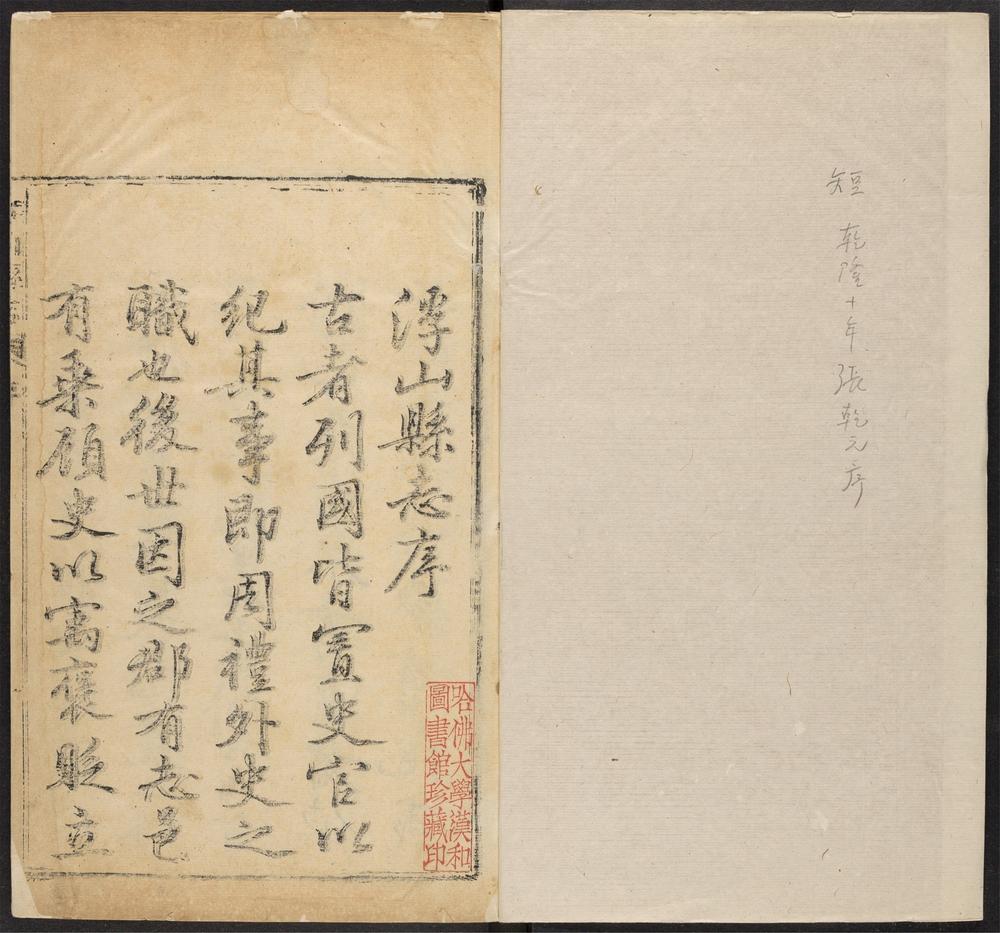 短 乾隆十年張乾元序
浮山縣志序
古者列國皆置史官以
紀其事即周禮外史之
職也後世因之郡有志邑
有乗顧史以寓褒貶立
哈佛大學漢和
圖書館珍藏印